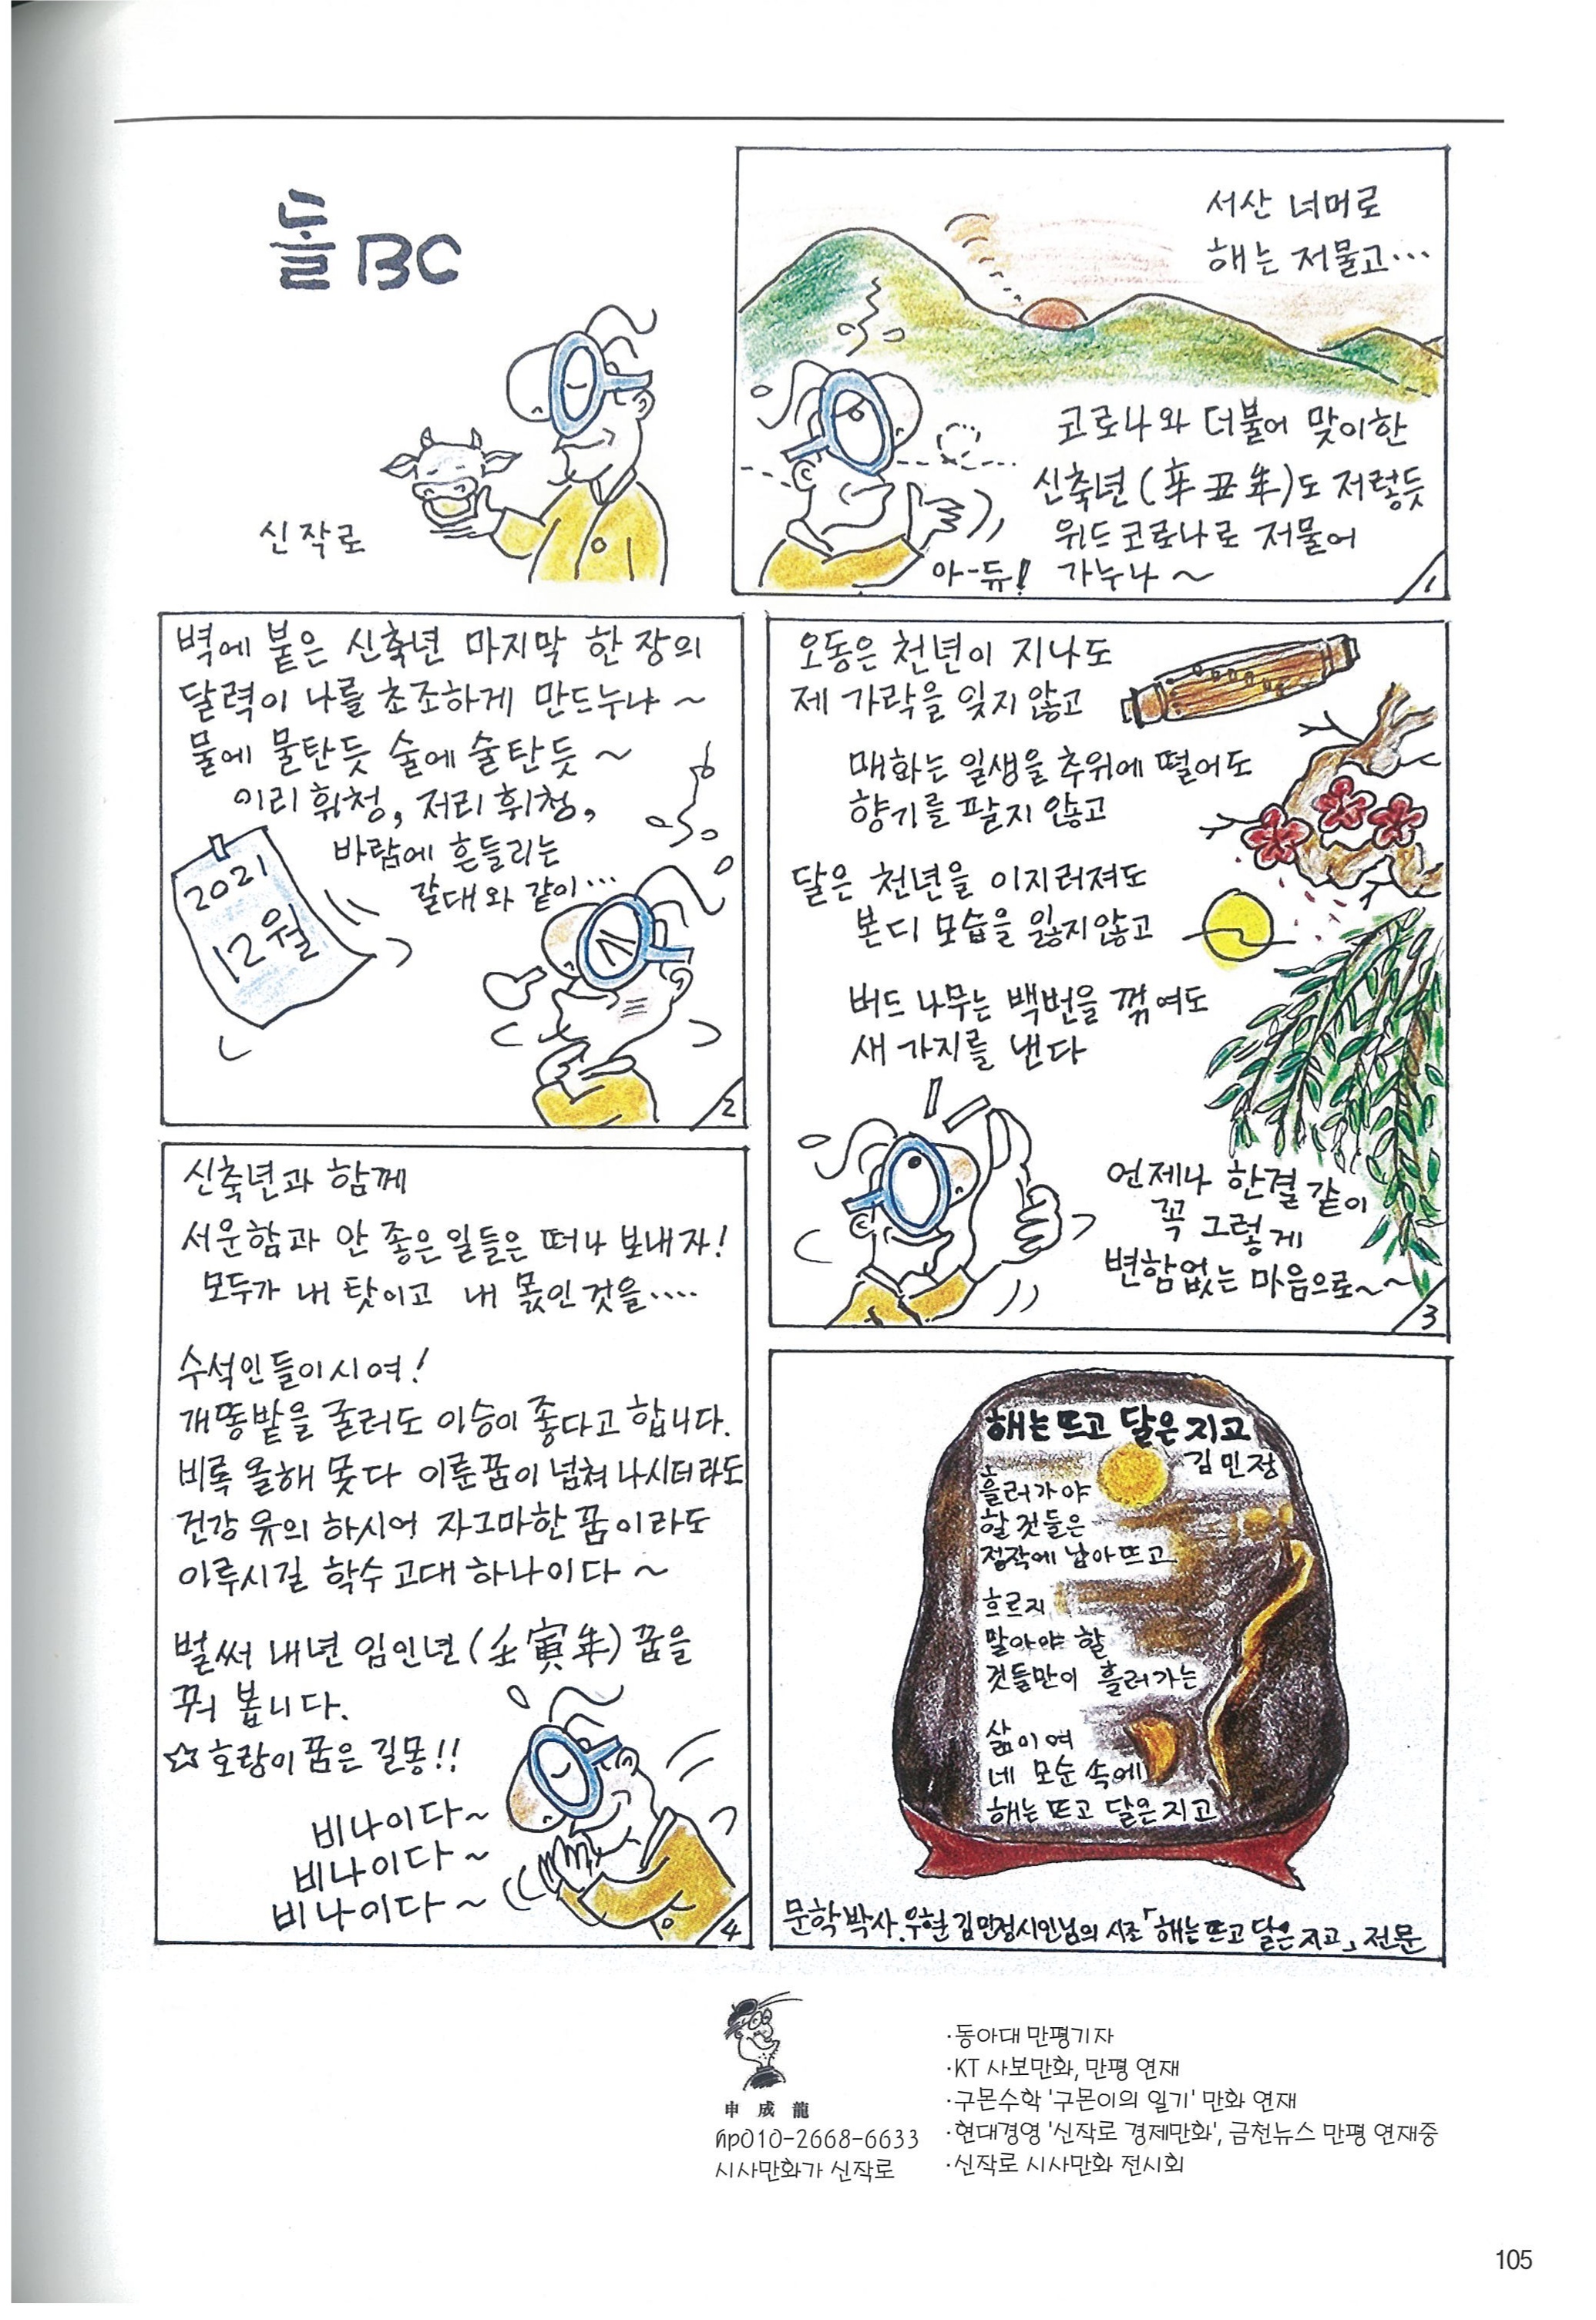 돌BC
신작로
서산 너머로
해는 저물고…
코로나와 더불어 맞이한
신축년(辛丑年)도 저렇듯
위드코로나로 저물어
가누나~
아-듀!
1
벽에 붙은 신축년 마지막 한 장의
달력이 나를 초조하게 만드누나~
물에 물탄듯 술에 술탄듯~
이리 휘청, 저리 휘청,
바람에 흔들리는
갈대와 같이…
2021
12월
2
오동은 천년이 지나도
제 가락을 잊지 않고
매화는 일생을 추위에 떨어도
향기를 팔지 않고
달은 천년을 이지러져도
본디 모습을 잃지않고
버드나무는 백번을 꺾여도
새 가지를 낸다
언제나 한결같이
꼭 그렇게
변함없는 마음으로~~
3
신축년과 함께
서운함과 안 좋은 일들은 떠나 보내자!
모두가 내 탓이고 내 몫인 것을····
수석인들이시여!
개똥밭을 굴러도 이승이 좋다고 합니다.
비록 올해 못다 이룬꿈이 넘쳐나시더라도
건강 유의 하시어 자그마한 꿈이라도
이루시길 학수고대 하나이다~
벌써 내년 임인년(壬寅年) 꿈을
꾸어 봅니다.
☆호랑이 꿈은 길몽!!
비나이다~
비나이다~
비나이다~
4
해는 뜨고 달은 지고
김민정
흘러가야
할 것들은
정작에 남아 뜨고
흐르지
말아야 할
것들만이 흘러가는
삶이여
네 모순 속에
해는 뜨고 달은 지고
문학박사.우현 김민정시인님의 시조「해는 뜨고 달은 지고」전문
申成龍
hp010-2668-6633
시사만화가 신작로
·동아대 만평기자
·KT 사보만화, 만평 연재
·구몬수학 '구몬이의 일기' 만화 연재
·현대경영 '신작로 경제만화', 금천뉴스 만평 연재중
·신작로 시사만화 전시회
105